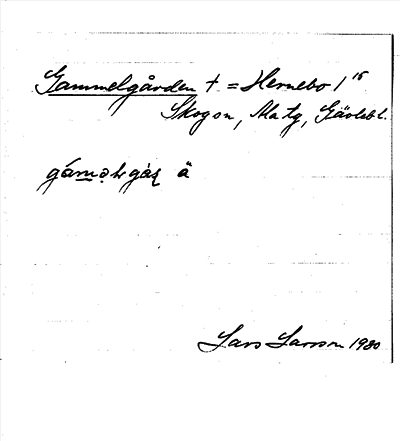 Gammelgården † = Hernebo 1¹⁵
Skogon, Ma tg, Gävlebl.
ä
Lars Larsson 1980